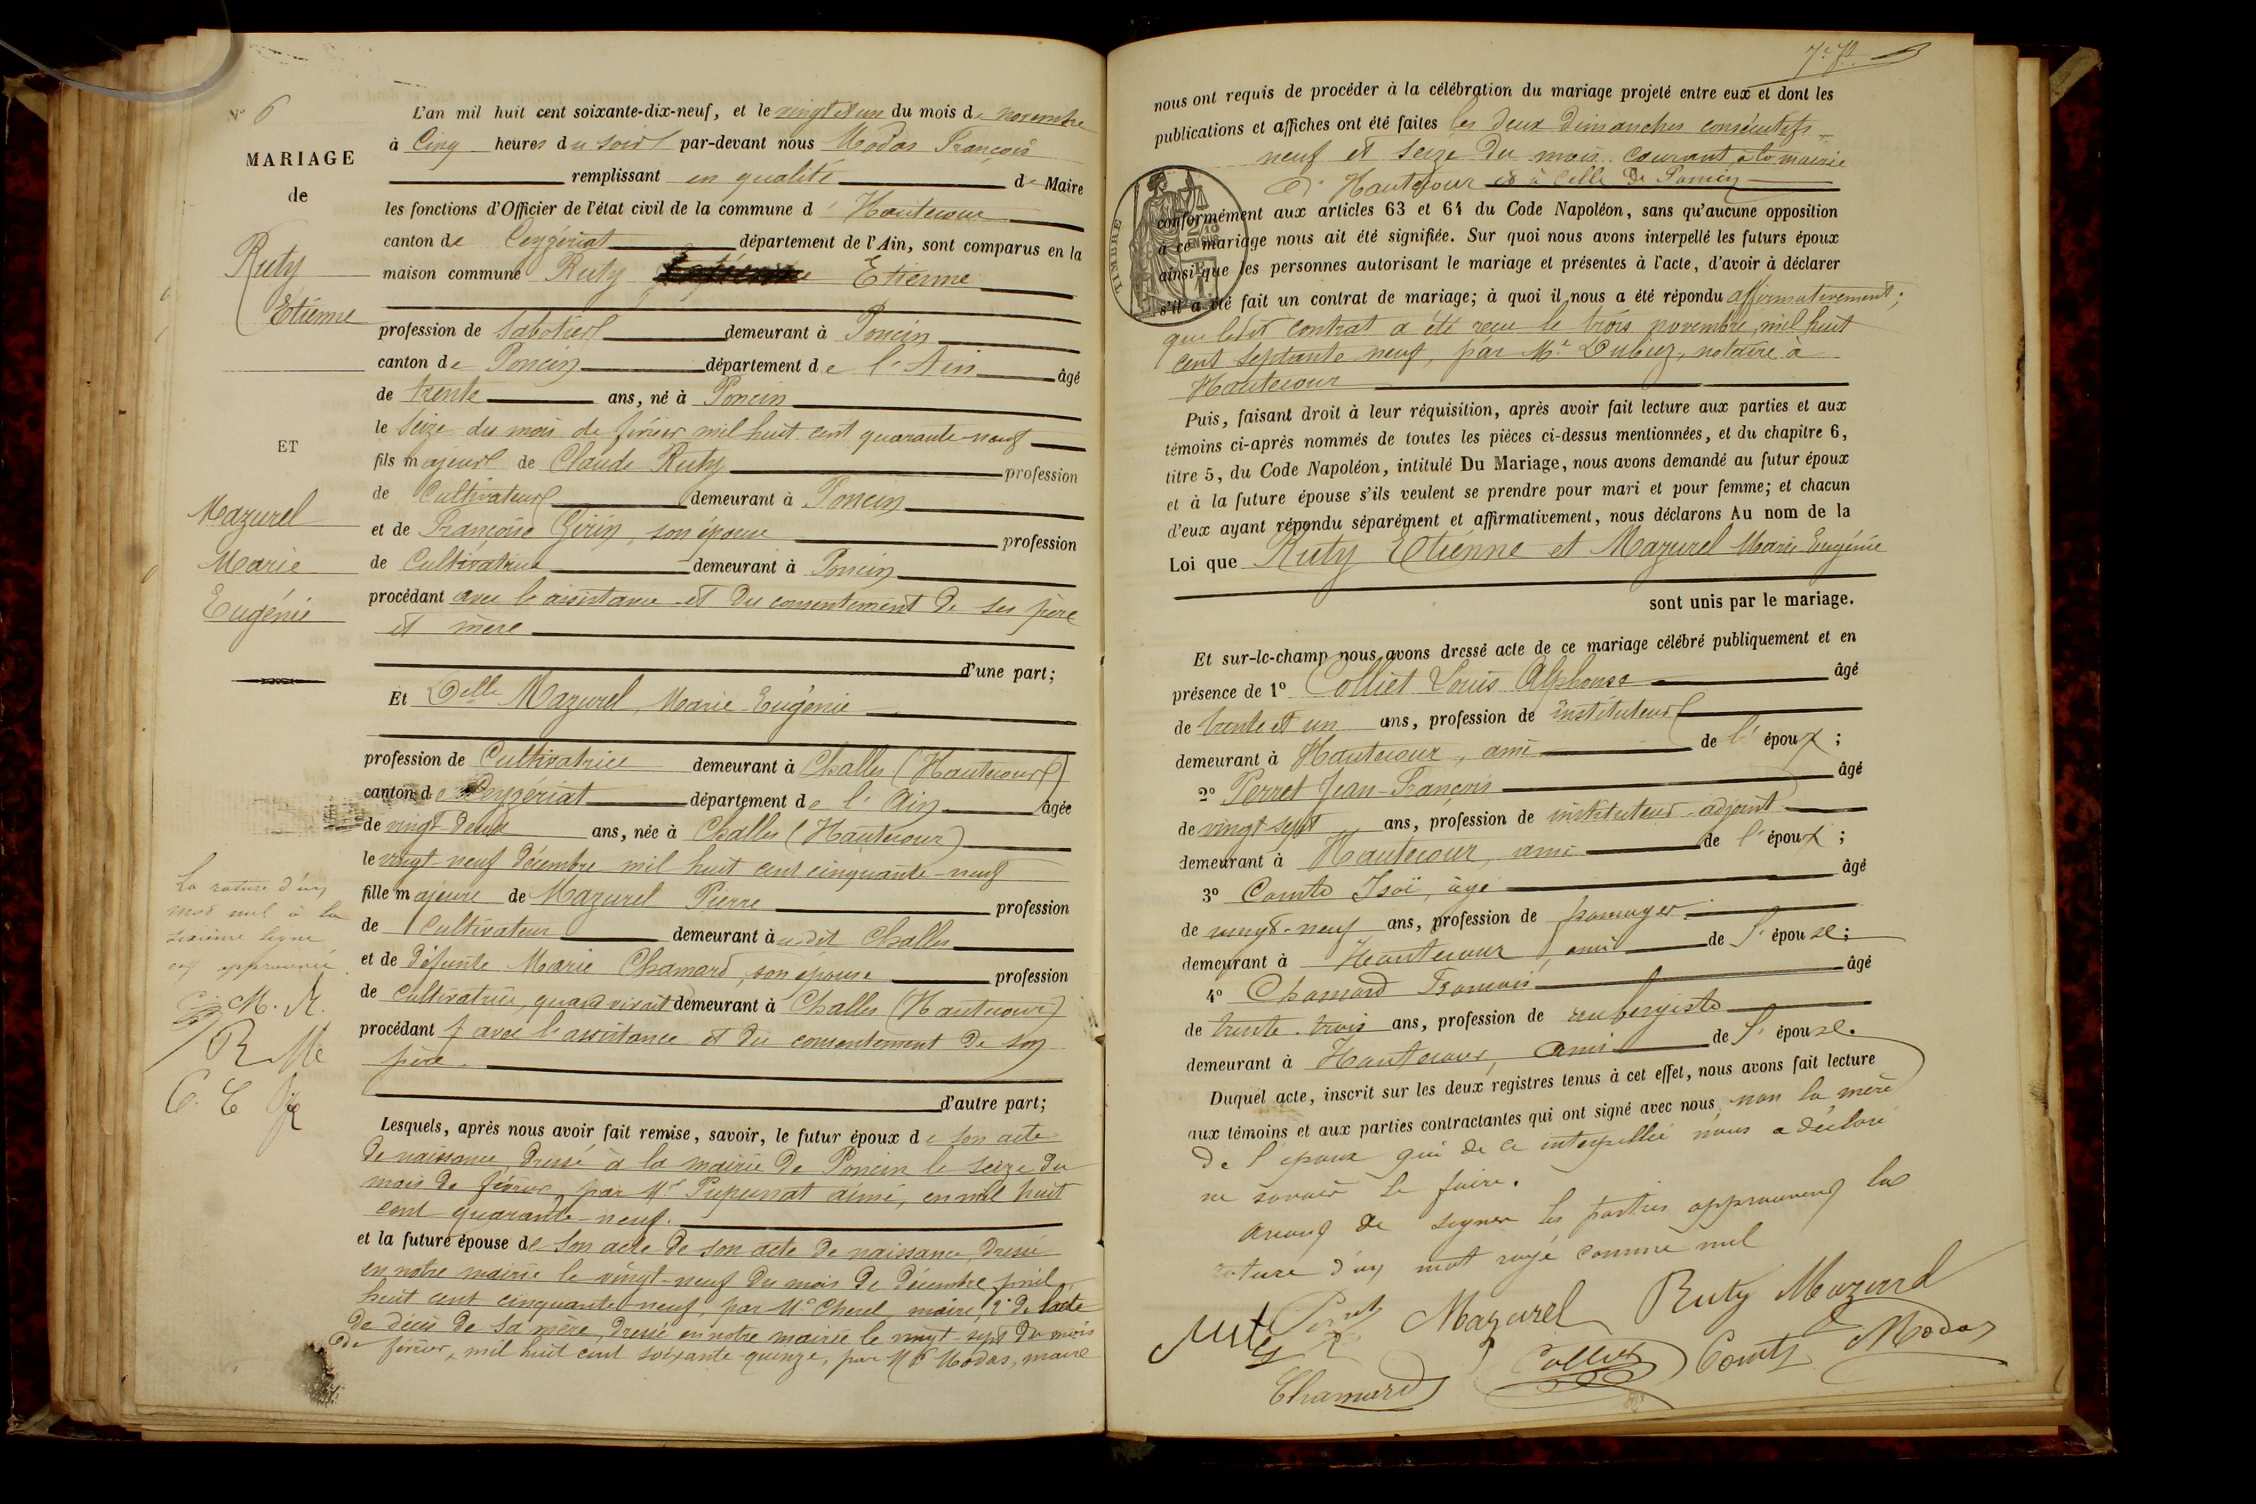 N° 6
MARIAGE
de
Ruty
Etienne
ET
Mazurel
Marie
Eugénie
La rature d'un
mot nul à la
sixième ligne
est approuvée
M. R.
R M
C. C
L'an mil huit cent soixante-dix-neuf, et le vingt et un du mois de novembre
à Cinq heures du soir par-devant nous Modas François
remplissant en qualité de Maire
les fonctions d'Officier de l'état civil de la commune d' Hautecour
canton de Ceyzériat département de l'Ain, sont comparus en la
maison commune Ruty Etienne
profession de Sabotier demeurant à Poncin
canton de Poncin département de l'Ain âgé
de trente ans, né à Poncin
le Seize du mois de février mil huit cent quarante-neuf
fils majeur de Claude Ruty profession
de Cultivateur demeurant à Poncin
et de Françoise Girin, son épouse profession
de Cultivatrice demeurant à Poncin
procédant avec l'assistance et du consentement de ses père
et mère
d'une part;
Et Delle Mazurel, Marie-Eugénie
profession de Cultivatrice demeurant à Challes (Hautecour)
canton de Ceyzériat département de l'Ain âgée
de vingt-deux ans, née à Challes (Hautecour)
le vingt-neuf décembre mil huit cent cinquante-neuf
fille majeure de Mazurel Pierre profession
de Cultivateur demeurant à udit Challes
et de défunte Marie Chamard, son épouse profession
de Cultivatrice, quand vivait demeurant à Challes (Hautecour)
procédant avec l'assistance et du consentement de son
père.
d'autre part;
Lesquels, après nous avoir fait remise, savoir, le futur époux de son acte
de naissance dressé à la mairie de Poncin le seize du
mois de février, par Mr Pupunat aimé, en mil huit
cent quarante-neuf.
et la future épouse de son acte de son acte de naissance, dressé
en notre mairie le vingt-neuf du mois de décembre mil
huit cent cinquante-neuf, par Mr Cherel, maire, 2° de l'acte
de décès de sa mère, dressé en notre mairie le vingt-sept du mois
de février, mil huit cent soixante-quinze, par Mr Modas, maire
nous ont requis de procéder à la célébration du mariage projeté entre eux et dont les
publications et affiches ont été faites les deux Dimanches consécutifs
neuf et seize du mois courant, à la mairie
d'Hautecour et à celle de Poncin
TIMBRE
conformément aux articles 63 et 64 du Code Napoléon, sans qu'aucune opposition
à ce mariage nous ait été signifiée. Sur quoi nous avons interpellé les futurs époux
ainsi que les personnes autorisant le mariage et présentes à l'acte, d'avoir à déclarer
s'il a été fait un contrat de mariage; à quoi il nous a été répondu affirmativement,
que ledit contrat a été reçu le trois novembre, mil huit
cent septante neuf, par Me Dubiez, notaire à
Hautecour
Puis, faisant droit à leur réquisition, après avoir fait lecture aux parties et aux
témoins ci-après nommés de toutes les pièces ci-dessus mentionnées, et du chapitre 6,
titre 5, du Code Napoléon, intitulé Du Mariage, nous avons demandé au futur époux
et à la future épouse s'ils veulent se prendre pour mari et pour femme; et chacun
d'eux ayant répondu séparément et affirmativement, nous déclarons Au nom de la
Loi que Ruty Etienne et Mazurel Marie Eugénie
sont unis par le mariage.
Et sur-le-champ nous avons dressé acte de ce mariage célébré publiquement et en
présence de 1° Colliet Louis Alphonse âgé
de trente et un ans, profession de instituteur
demeurant à Hautecour, ami de l'époux;
2° Perret Jean-François âgé
de vingt-sept ans, profession de instituteur-adjoint
demeurant à Hautecour, ami de l'époux;
3° Comte Isaï, âgé âgé
de vingt-neuf ans, profession de fromager
demeurant à Hautecour, ami de l'épouse;
4° Chamard François âgé
de trente-trois ans, profession de aubergiste
demeurant à Hautecour, ami de l'épouse.
Duquel acte, inscrit sur les deux registres tenus à cet effet, nous avons fait lecture
aux témoins et aux parties contractantes qui ont signé avec nous non la mère
de l'époux qui de ce interpellée nous a déclaré
ne savoir le faire.
avant de signer les parties approuvent la
rature d'un mot rayé comme nul
Ruty Perret Mazurel Ruty Mazurel
Chamard Colliet Comte Modas